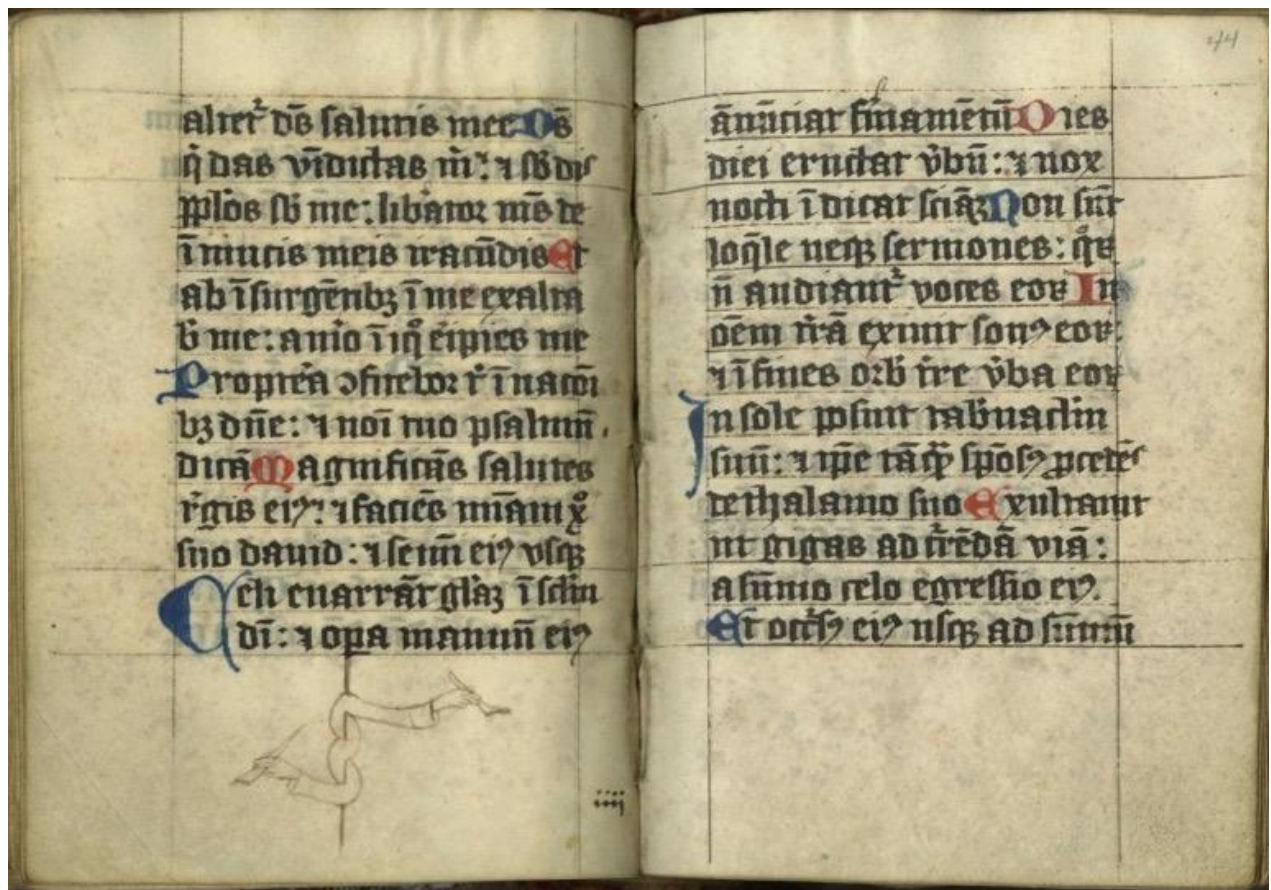 altet᷑ dс̄ salutis mee Ds̄
q̇ das vīdictas m̄: ⁊ sb̄dis
pplo̅s sb̄ me: lib̓ator me͛ de
īimicis meis iracu̅dis Et
ab īsurge̅tibꝫ ī me exalta
b̓ me: a viro īiqͦ eͥpies me
Propte̅a ꝯfitebor t̓ ī nac̅oi
bꝫ dn̄e: ⁊ noī tuo psalmu̅
dica̅ Magnifica̅s salutes
r̓gis eiꝰ: ⁊ facie̅s mīam xͦ
suo dauid: ⁊ semi̅ eiꝰ vsqꝫ
Celi enarra̅t glāꝫ ī sclm
dī: ⁊ oꝑa manuu̅ eiꝰ
iiij
44
a̅nu̅ciat fir̓mame̅tu̅ Dies
diei eructat v̓bu̅: ⁊ nox
nocti īdicat scīaꝫ Non su̅t
loq̄le neqꝫ sermones: qͦꝝ
n̄ audiant᷑ voces eoꝝ In
oe̅m tr̄a̅ exiuit sonꝰ eoꝝ:
⁊ ī fines orb̓ tr̄e v̓ba eoꝝ
In sole posuit tab̓naclm
suu̅: ⁊ ip̄e ta̅qͣꝫ spo̅sꝰ ꝓcede̅s
de thalamo suo Exultauit
ut gigas ad cr̄e̅da̅ via̅:
a su̅mo celo egressio eiꝰ.
Et occr̓sꝰ eiꝰ usqꝫ ad su̅mu̅